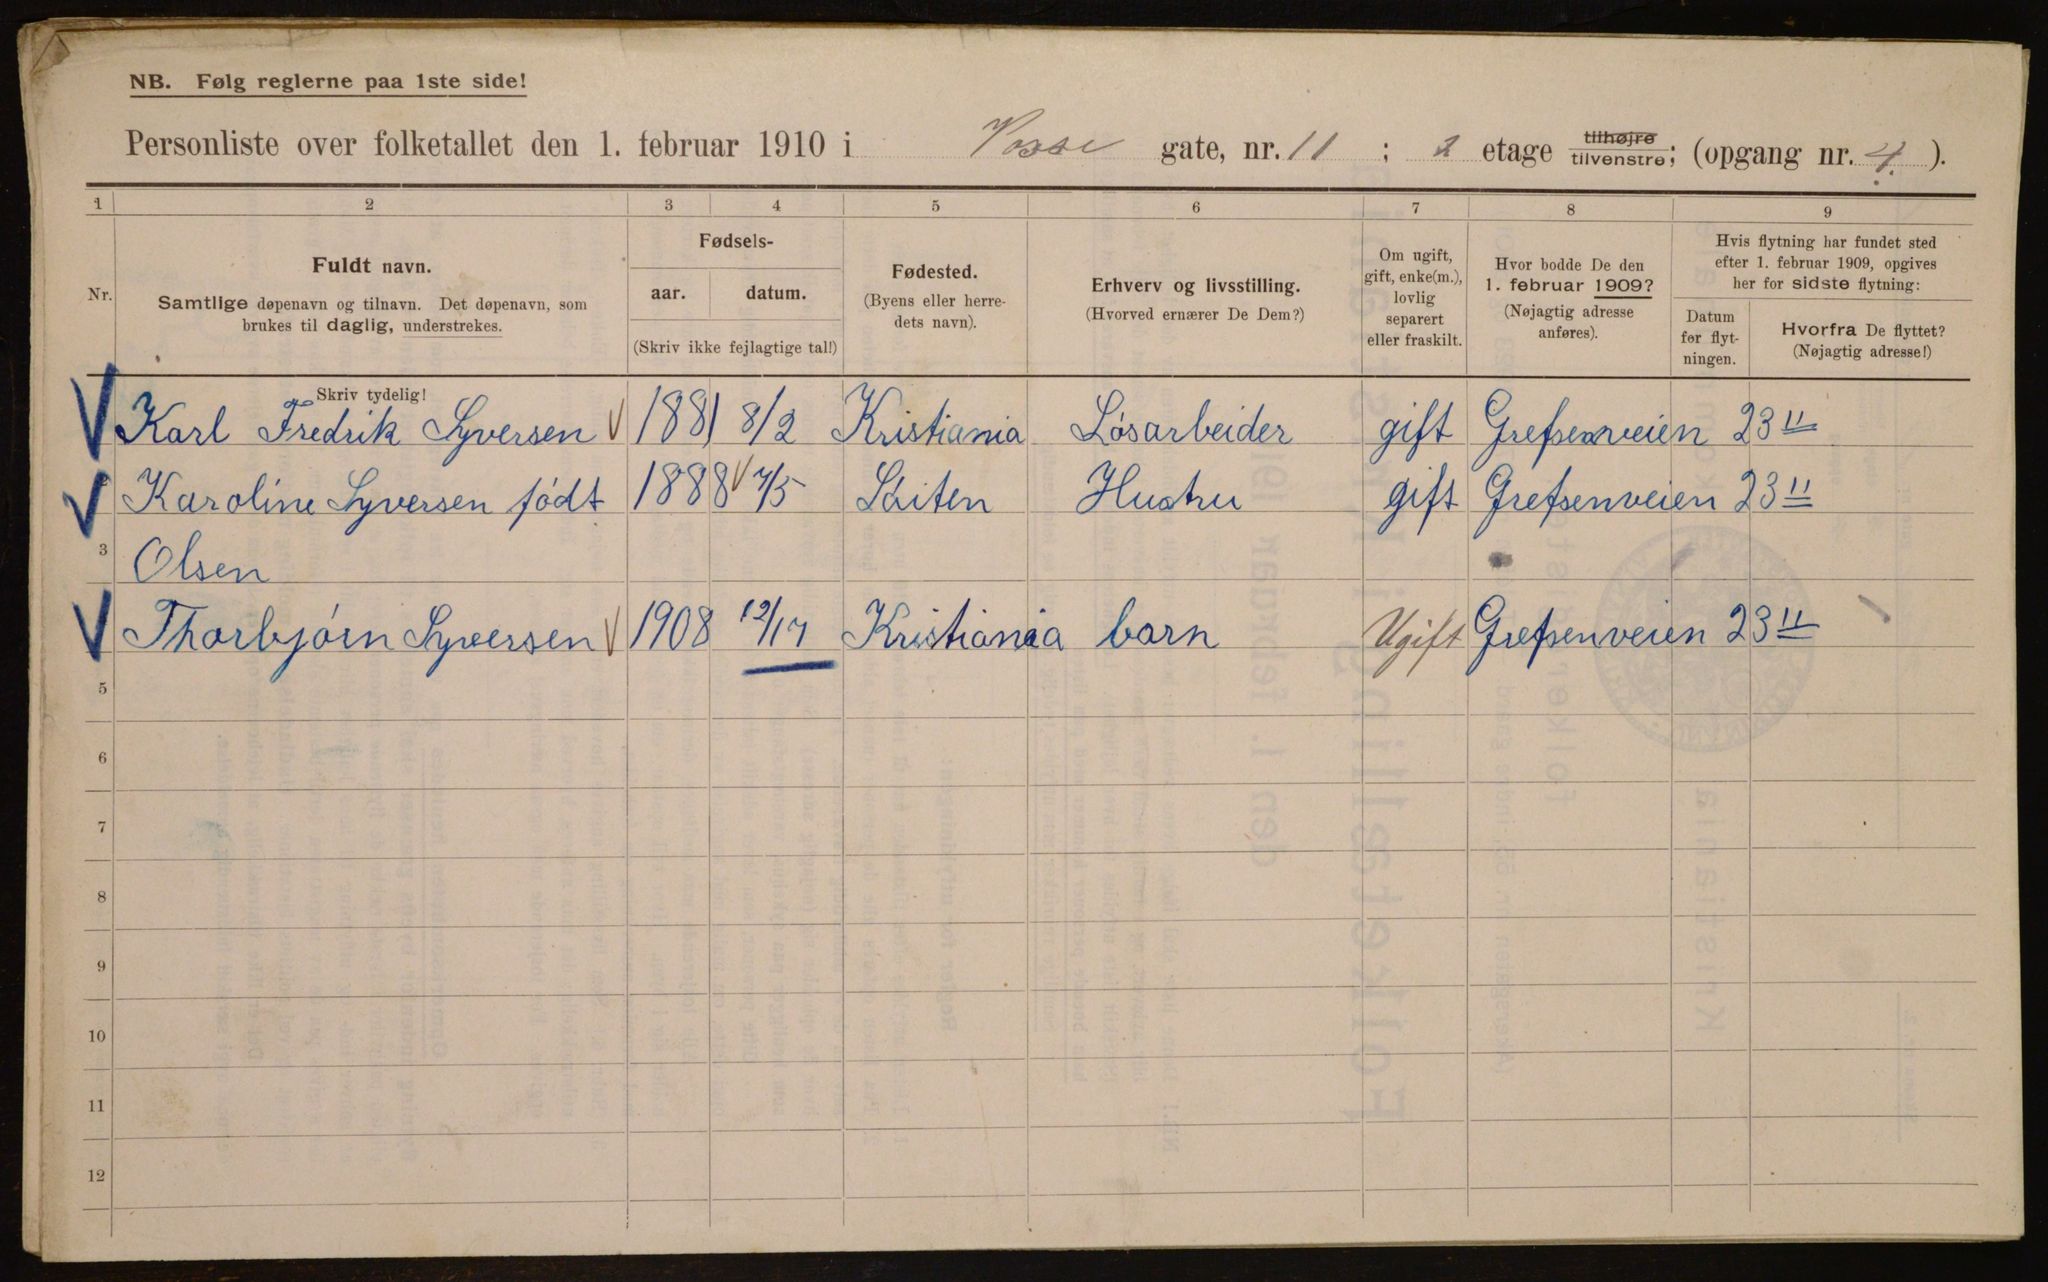 NB. Følg reglerne paa 1ste side!
Personliste over folketallet den 1. februar 1910 i Vosse gate, nr. 11 ; 2 etage tilhøjre tilvenstre; (opgang nr. 4.).
1 2 3 4 5 6 7 8 9
Nr.
Fuldt navn.
Samtlige døpenavn og tilnavn. Det døpenavn, som
brukes til daglig, understrekes.
Skriv tydelig!
Fødsels-
aar. datum.
(Skriv ikke fejlagtige tal!)
Fødested.
(Byens eller herre-
dets navn).
Erhverv og livsstilling.
(Hvorved ernærer De Dem?)
Om ugift,
gift, enke(m.),
lovlig
separert
eller fraskilt.
Hvor bodde De den
1. februar 1909?
(Nøjagtig adresse
anføres).
Hvis flytning har fundet sted
efter 1. februar 1909, opgives
her for sidste flytning:
Datum
før flyt-
ningen.
Hvorfra De flyttet?
(Nøjagtig adresse!)
Karl Fredrik Syversen 1881 8/2 Kristiania Løsarbeider gift Grefsenveien 23 II
Karoline Syversen født 1888 7/5 Løiten Hustru gift Grefsenveien 23 II
3 Olsen
Thorbjørn Syversen 1908 12/17 Kristiania barn Ugift Grefsenveien 23 II
5
6
7
8
9
10
11
12